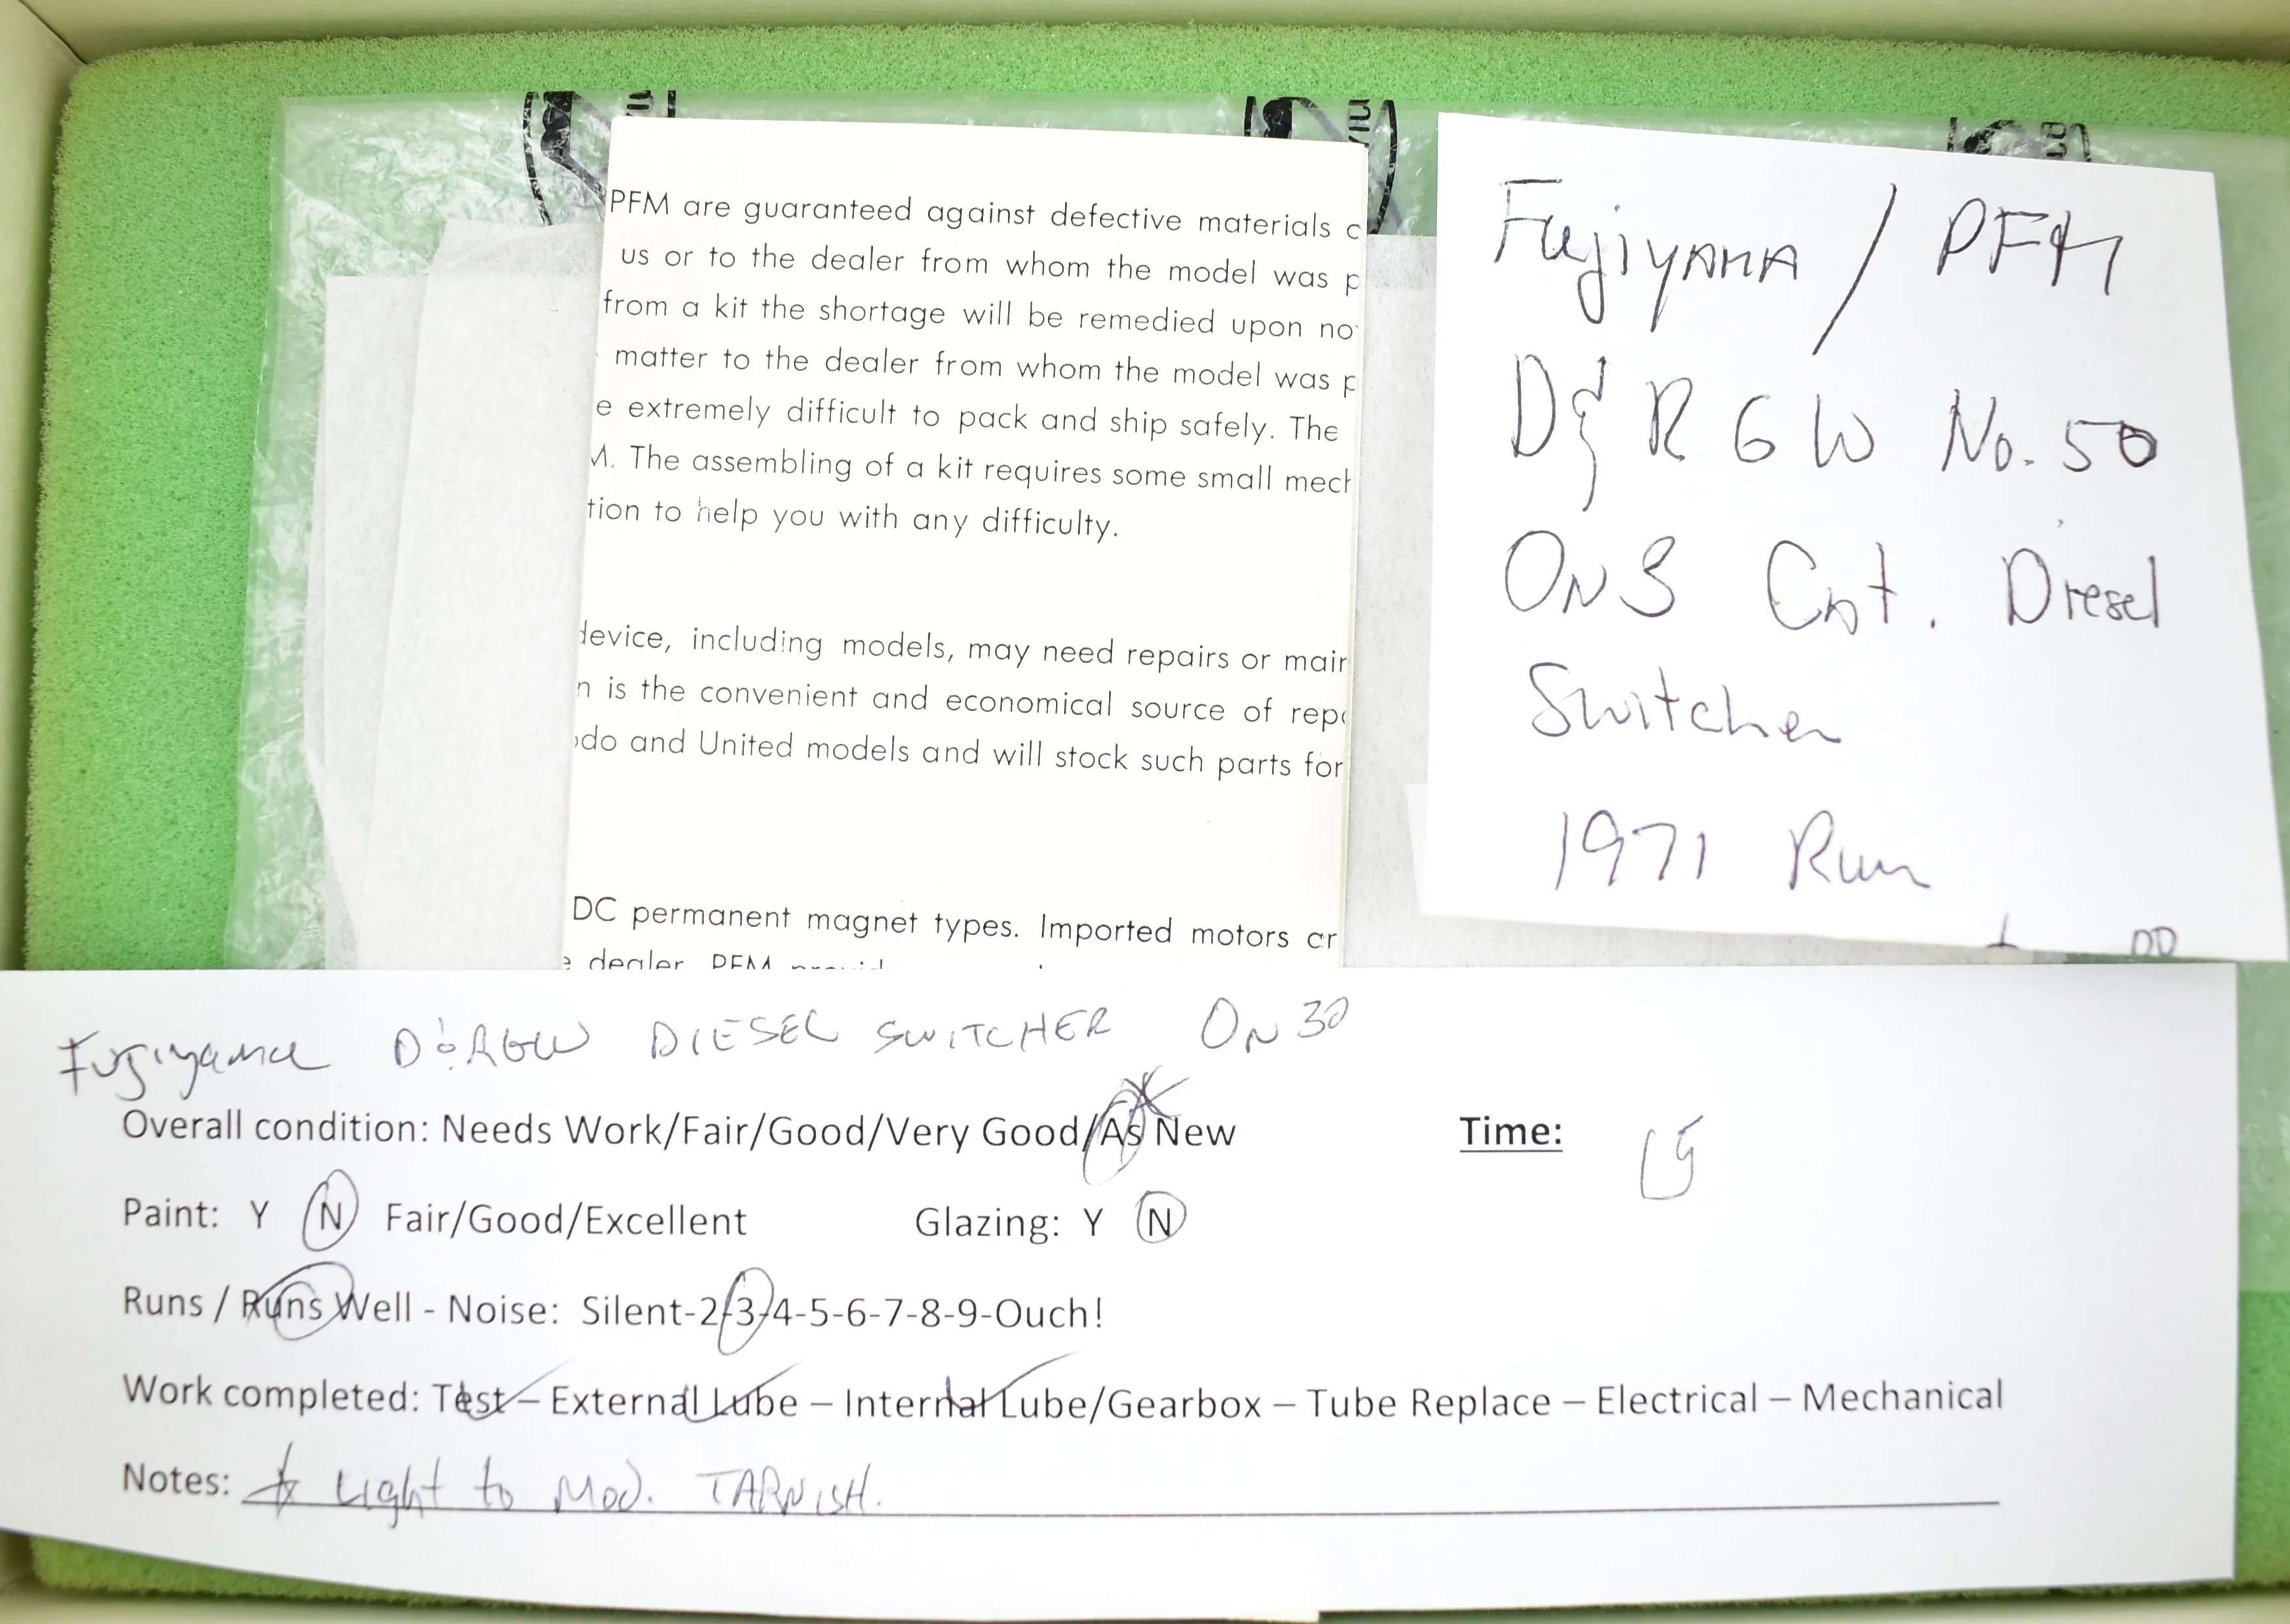 PFM are guaranteed against defective materials
us or to the dealer from whom the model was
from a kit the shortage will be remedied upon
matter to the dealer from whom the model was
extremely difficult to pack and ship safely. The
The assembling of a kit requires some small
tion to help you with any difficulty.
device, including models, may need repairs or
is the convenient and economical source of
and United models and will stock such parts for
DC permanent magnet types. Imported motors
dealer PFM
Fujiyama / PFM
D&RGW No. 50
On3 Cnt. Diesel
Switcher
1971 Run
Fujiyama D&RGW DIESEL SWITCHER On30
Overall condition: Needs Work/Fair/Good/Very Good/As New
Time: 15
Paint: Y N Fair/Good/Excellent Glazing: Y N
Runs / Runs Well - Noise: Silent-2-3-4-5-6-7-8-9-Ouch!
Work completed: Test – External Lube – Internal Lube/Gearbox – Tube Replace – Electrical – Mechanical
Notes: * Light to Mod. TARNISH.